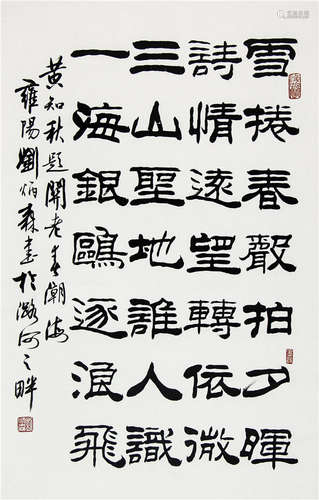 雪捲春聲拍夕暉
詩情遠望轉依微
三山聖地誰人識
一海銀鷗逐浪飛
黄知秋題老春潮海
雍陽劉炳森書於潞河之畔